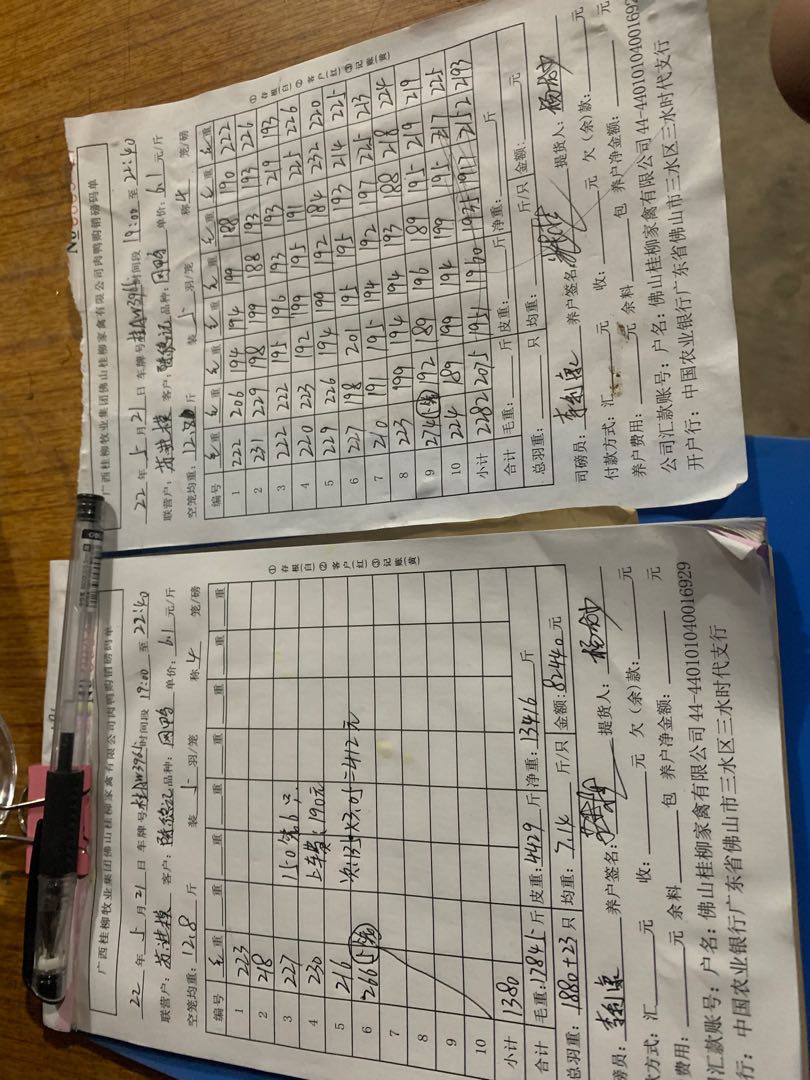 广西桂柳牧业集团佛山桂柳家禽有限公司肉鸭购销磅码单
22年5月21日 车牌号 时间段19:00至22:40
联营户: 客户: 品种: 单价:6.1元/斤
空笼均重:12.8斤 装5羽/笼 称4笼/磅
编号 毛重 毛重 毛重 毛重 毛重 毛重 毛重 毛重
1 222 206 194 194 199 188 190 222
2 231 229 198 199 188 193 193 226
3 222 222 195 196 193 193 219 193
4 220 223 192 199 195 191 225 226
5 229 226 194 199 192 184 232 220
6 227 198 201 195 195 193 214 225
7 210 191 195 194 192 197 225 213
8 223 199 194 194 193 188 218 224
9 274 192 189 196 189 195 219 219
10 224 189 199 194 199 195 217 225
小计 2282 2075 1951 1960 1935 1917 2152 2193
合计 毛重: 斤 皮重: 斤 净重: 斤
总羽重: 只 均重: 斤/只 金额: 元
司磅员: 养户签名: 提货人:
付款方式:汇 元 收: 元 欠(余)款: 元
养户费用: 元 余料 包 养户净金额: 元
公司汇款账号:户名:佛山桂柳家禽有限公司44-440101040016929
开户行:中国农业银行广东省佛山市三水区三水时代支行
①存根(白)②客户(红)③记账(黄)
广西桂柳牧业集团佛山桂柳家禽有限公司肉鸭购销磅码单
22年5月21日 车牌号 时间段19:00至22:40
联营户: 客户: 品种: 单价:6.1元/斤
空笼均重:12.8斤 装5羽/笼 称4笼/磅
编号 毛重 重 重 重 重 重 重 重
1 223
2 218
3 227 150
4 230 上车费:190元
5 216 =412元
6 266
7
8
9
10
小计 1380
合计 毛重:17845斤 皮重:4429斤 净重:13416斤
总羽重:1880+23只 均重:7.14斤/只 金额:82440元
磅员: 养户签名: 提货人:
方式:汇 元 收: 元 欠(余)款: 元
费用: 元 余料 包 养户净金额: 元
汇款账号:户名:佛山桂柳家禽有限公司44-440101040016929
行:中国农业银行广东省佛山市三水区三水时代支行
①存根(白)②客户(红)③记账(黄)